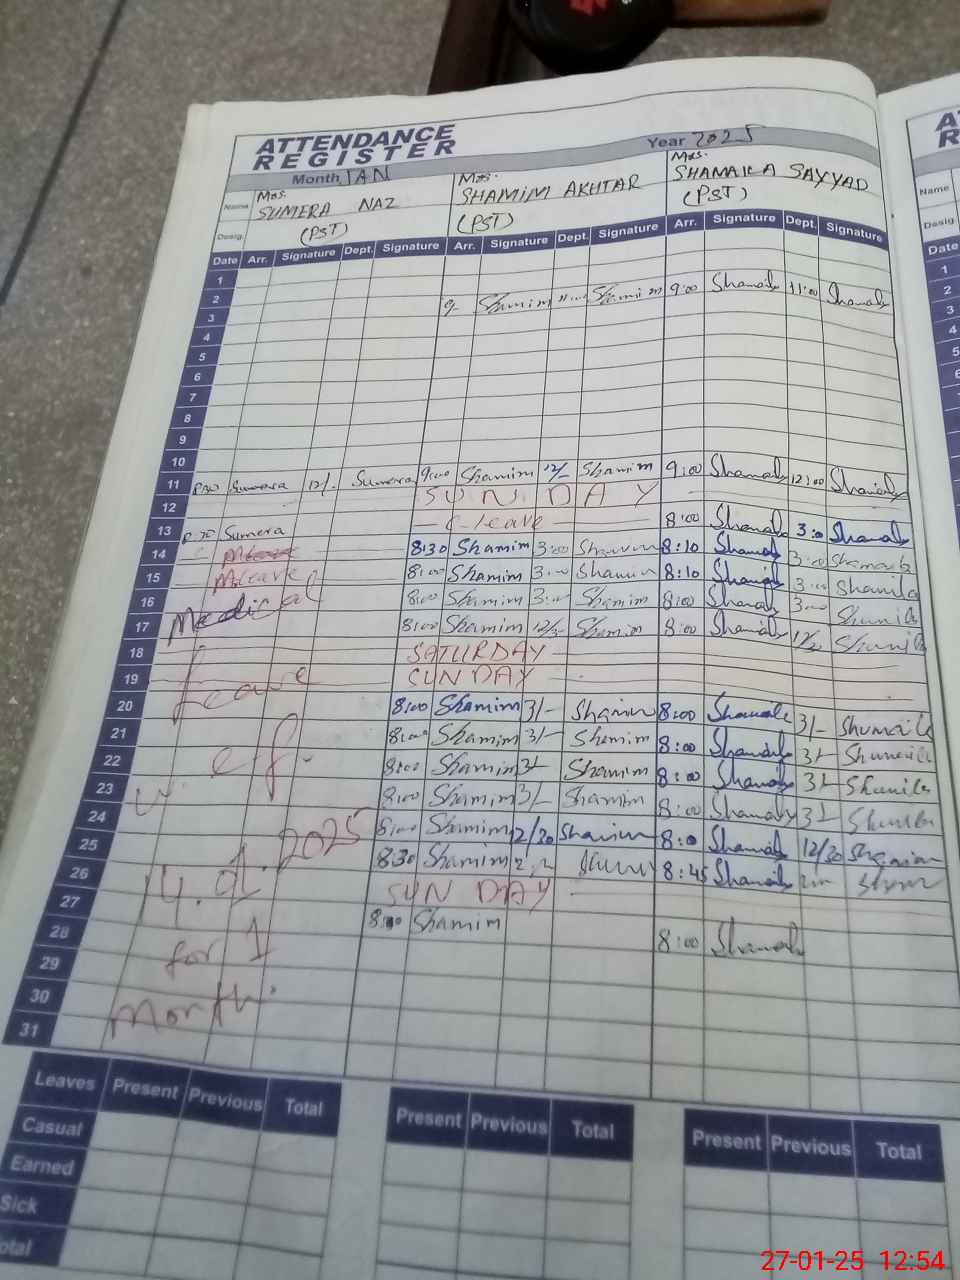 ATTENDANCE
REGISTER
Month JAN Year 2025
Name Mrs. SUMERA NAZ Mrs. SHAMIM AKHTAR Mrs. SHAMAILA SAYYAD
Desig. (PST) (PST) (PST)
Date Arr. Signature Dept. Signature Arr. Signature Dept. Signature Arr. Signature Dept. Signature
1
2 9- Shamim Shamim 9:00 11:00
3
4
5
6
7
8
9
10
11 Sumera 12/- Sumera 9:00 Shamim 12/- Shamim 9:00 12:00
12 SUNDAY
13 Sumera C-leave 8:00 3:00
14 8:30 Shamim 3:00 Shamim 8:10 3:00
15 M.leave 8:00 Shamim 3:00 Shamim 8:10 3:00
16 8:00 Shamim 3:00 Shamim 8:00 3:00
17 8:00 Shamim Shamim 8:00
18 SATURDAY
19 SUNDAY
20 8:00 Shamim 3/- Shamim 8:00 3/-
21 8:00 Shamim 3/- Shamim 8:00 3/-
22 8:00 Shamim 3/- Shamim 8:00 3/-
23 8:00 Shamim 3/- Shamim 8:00 3/-
24 8:00 Shamim 12/30 Shamim 8:0 12/30
25 8:30 Shamim 8:45
26 SUN DAY
27 Shamim 8:00
28
29
30
31
Medical
Leave
w.ef.
14.01.2025
for 1
month.
Leaves Present Previous Total Present Previous Total Present Previous Total
Casual
Earned
Sick
Total
Name
Desig
Date
1
2
3
4
5
6
27-01-25 12:54